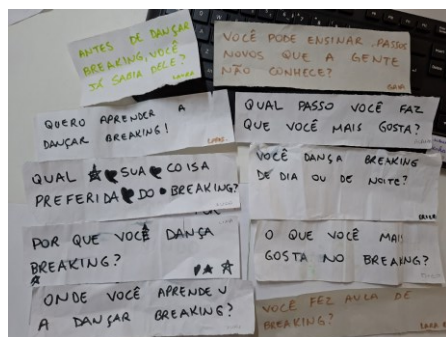 ANTES DE DANÇAR
BREAKING, VOCÊ
JÁ SABIA DELE?
VOCÊ PODE ENSINAR PASSOS
NOVOS QUE A GENTE
NÃO CONHECE?
QUERO APRENDER A
DANÇAR BREAKING!
QUAL PASSO VOCÊ FAZ
QUE VOCÊ MAIS GOSTA?
QUAL SUA COISA
PREFERIDA DO BREAKING?
VOCÊ DANÇA BREAKING
DE DIA OU DE NOITE?
POR QUE VOCÊ DANÇA
BREAKING?
O QUE VOCÊ MAIS
GOSTA NO BREAKING?
ONDE VOCÊ APRENDEU
A DANÇAR BREAKING?
VOCÊ FEZ AULA DE
BREAKING?